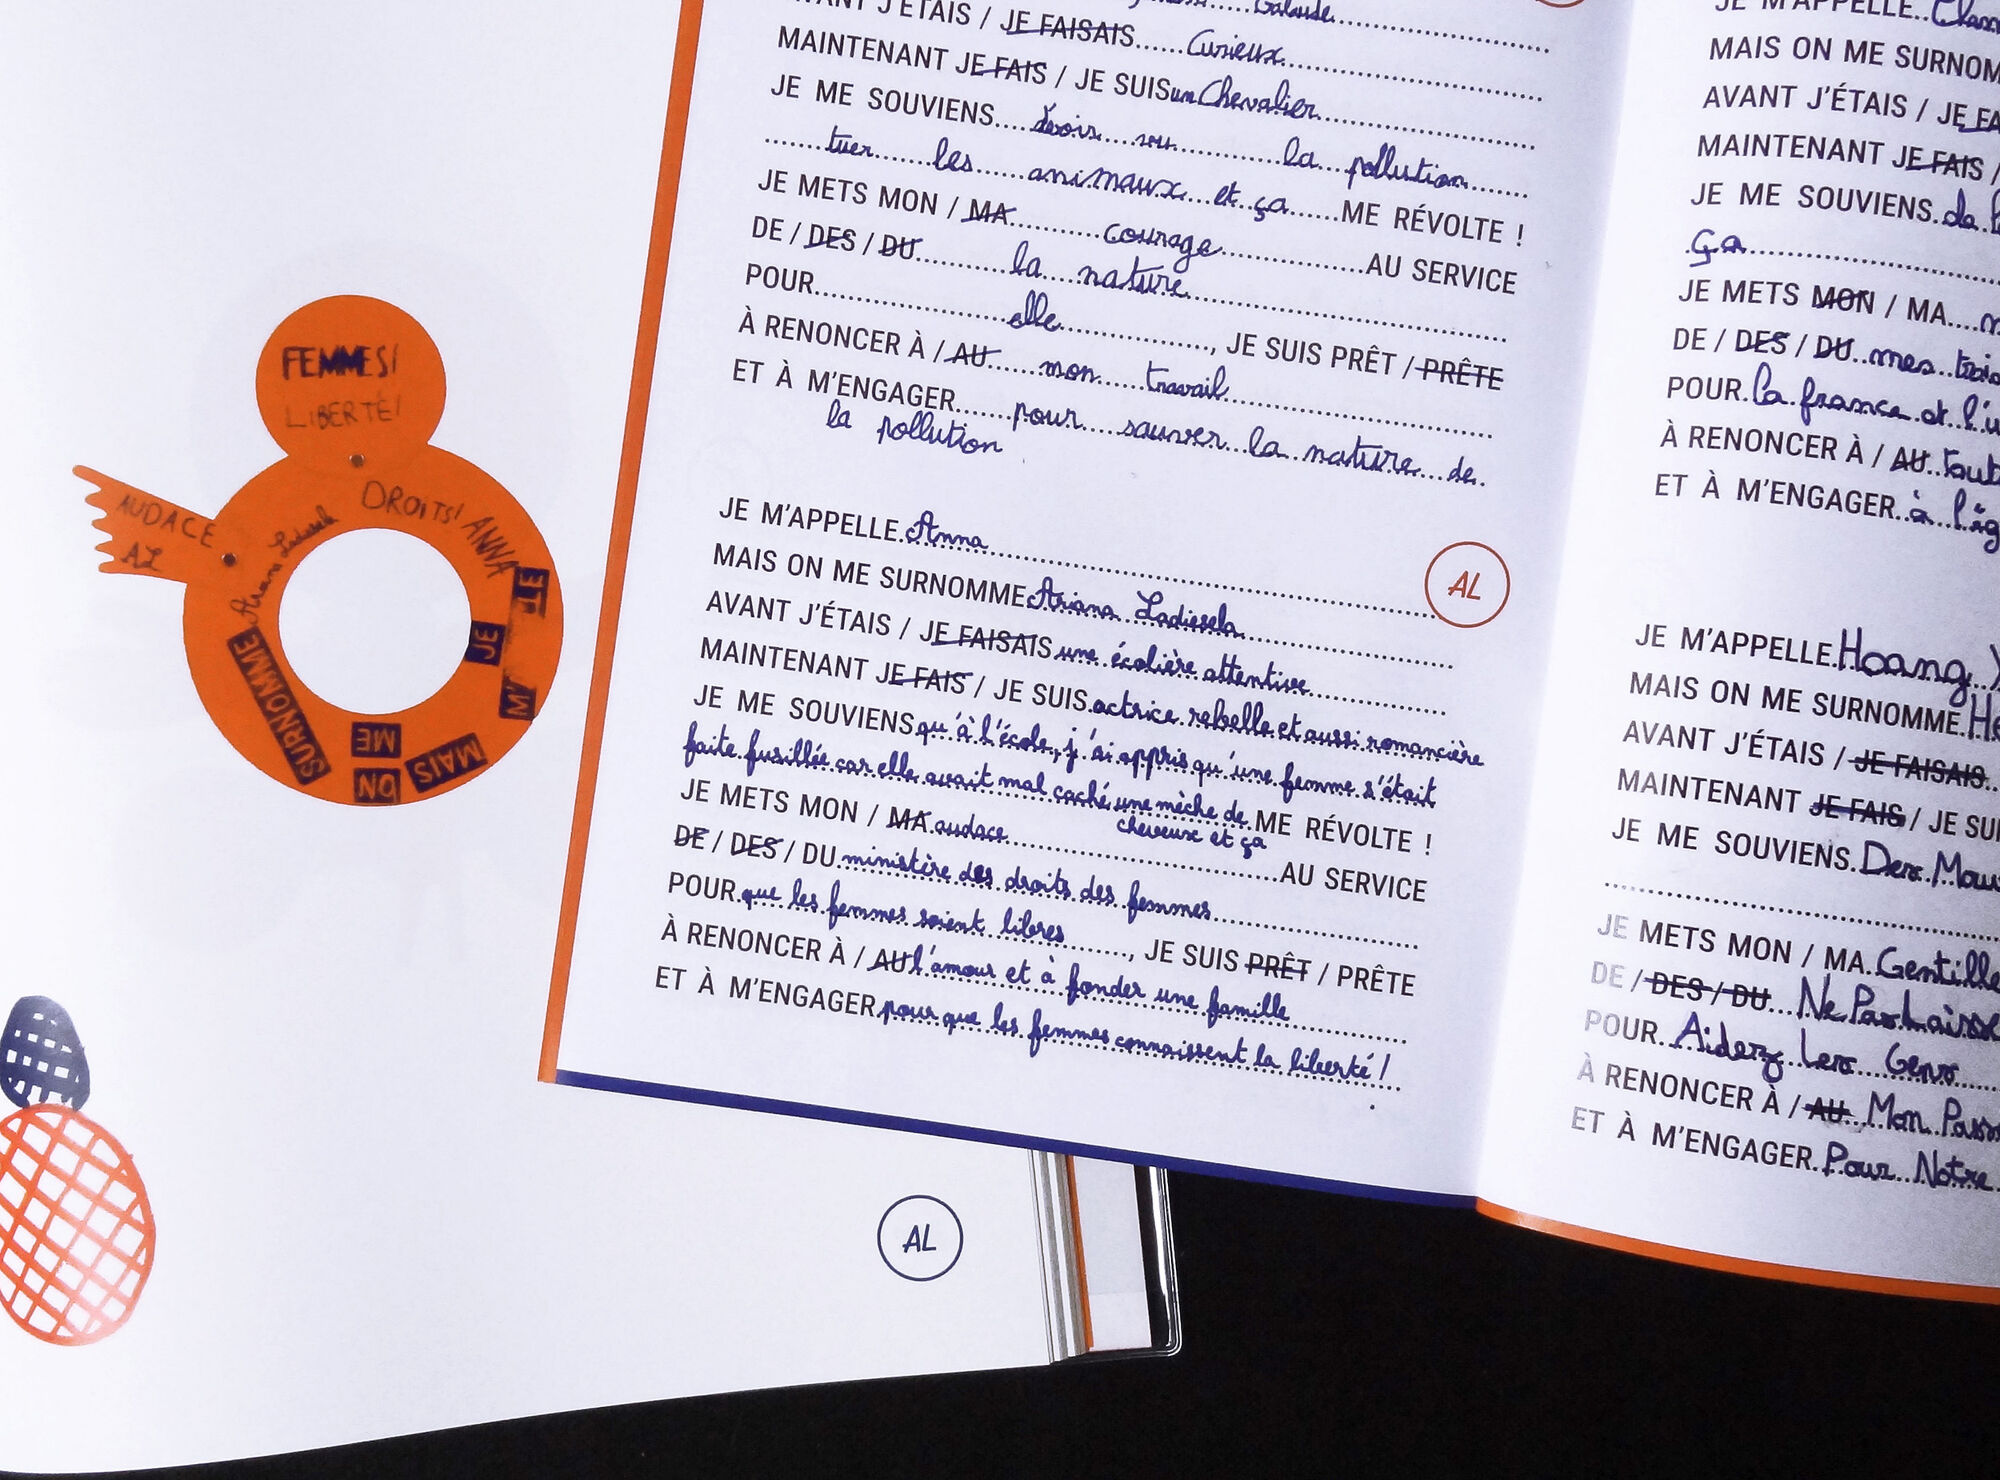 FEMMES!
LIBERTÉ!
DROITS! ANNA
AUDACE
AL
Ariana Ladiesela
JE
M'
JE
SURNOMME
ME
ON
MAIS
AL
AVANT J'ÉTAIS / JE FAISAIS......Curieux
MAINTENANT JE FAIS / JE SUIS un Chevalier
JE ME SOUVIENS.... vu la pollution
tuer les animaux et ça ME RÉVOLTE !
JE METS MON / MA courage AU SERVICE
DE / DES / DU la nature
POUR elle, JE SUIS PRÊT / PRÊTE
À RENONCER À / AU mon travail
ET À M'ENGAGER pour sauver la nature de
la pollution
JE M'APPELLE Anna
AL
MAIS ON ME SURNOMME Ariana Ladiesela
AVANT J'ÉTAIS / JE FAISAIS une écolière attentive
MAINTENANT JE FAIS / JE SUIS actrice rebelle et aussi romancière
JE ME SOUVIENS qu'à l'école, j'ai appris qu'une femme s'était
faite fusillée car elle avait mal caché une mèche de
cheveux et ça ME RÉVOLTE !
JE METS MON / MA audace AU SERVICE
DE / DES / DU ministère des droits des femmes
POUR que les femmes soient libres, JE SUIS PRÊT / PRÊTE
À RENONCER À / AU l'amour et à fonder une famille
ET À M'ENGAGER pour que les femmes connaissent la liberté !
JE M'APPELLE
MAIS ON ME SURNOM
AVANT J'ÉTAIS / JE FA
MAINTENANT JE FAIS /
JE ME SOUVIENS
ça
JE METS MON / MA
DE / DES / DU mes
POUR la france et
À RENONCER À / AU
ET À M'ENGAGER à
JE M'APPELLE Hoang
MAIS ON ME SURNOMME
AVANT J'ÉTAIS / JE FAISAIS
MAINTENANT JE FAIS / JE SUI
JE ME SOUVIENS
JE METS MON / MA Gentille
DE / DES / DU Ne Pas Laisse
POUR Aider Les Gens
À RENONCER À / AU Mon
ET À M'ENGAGER Pour Notre